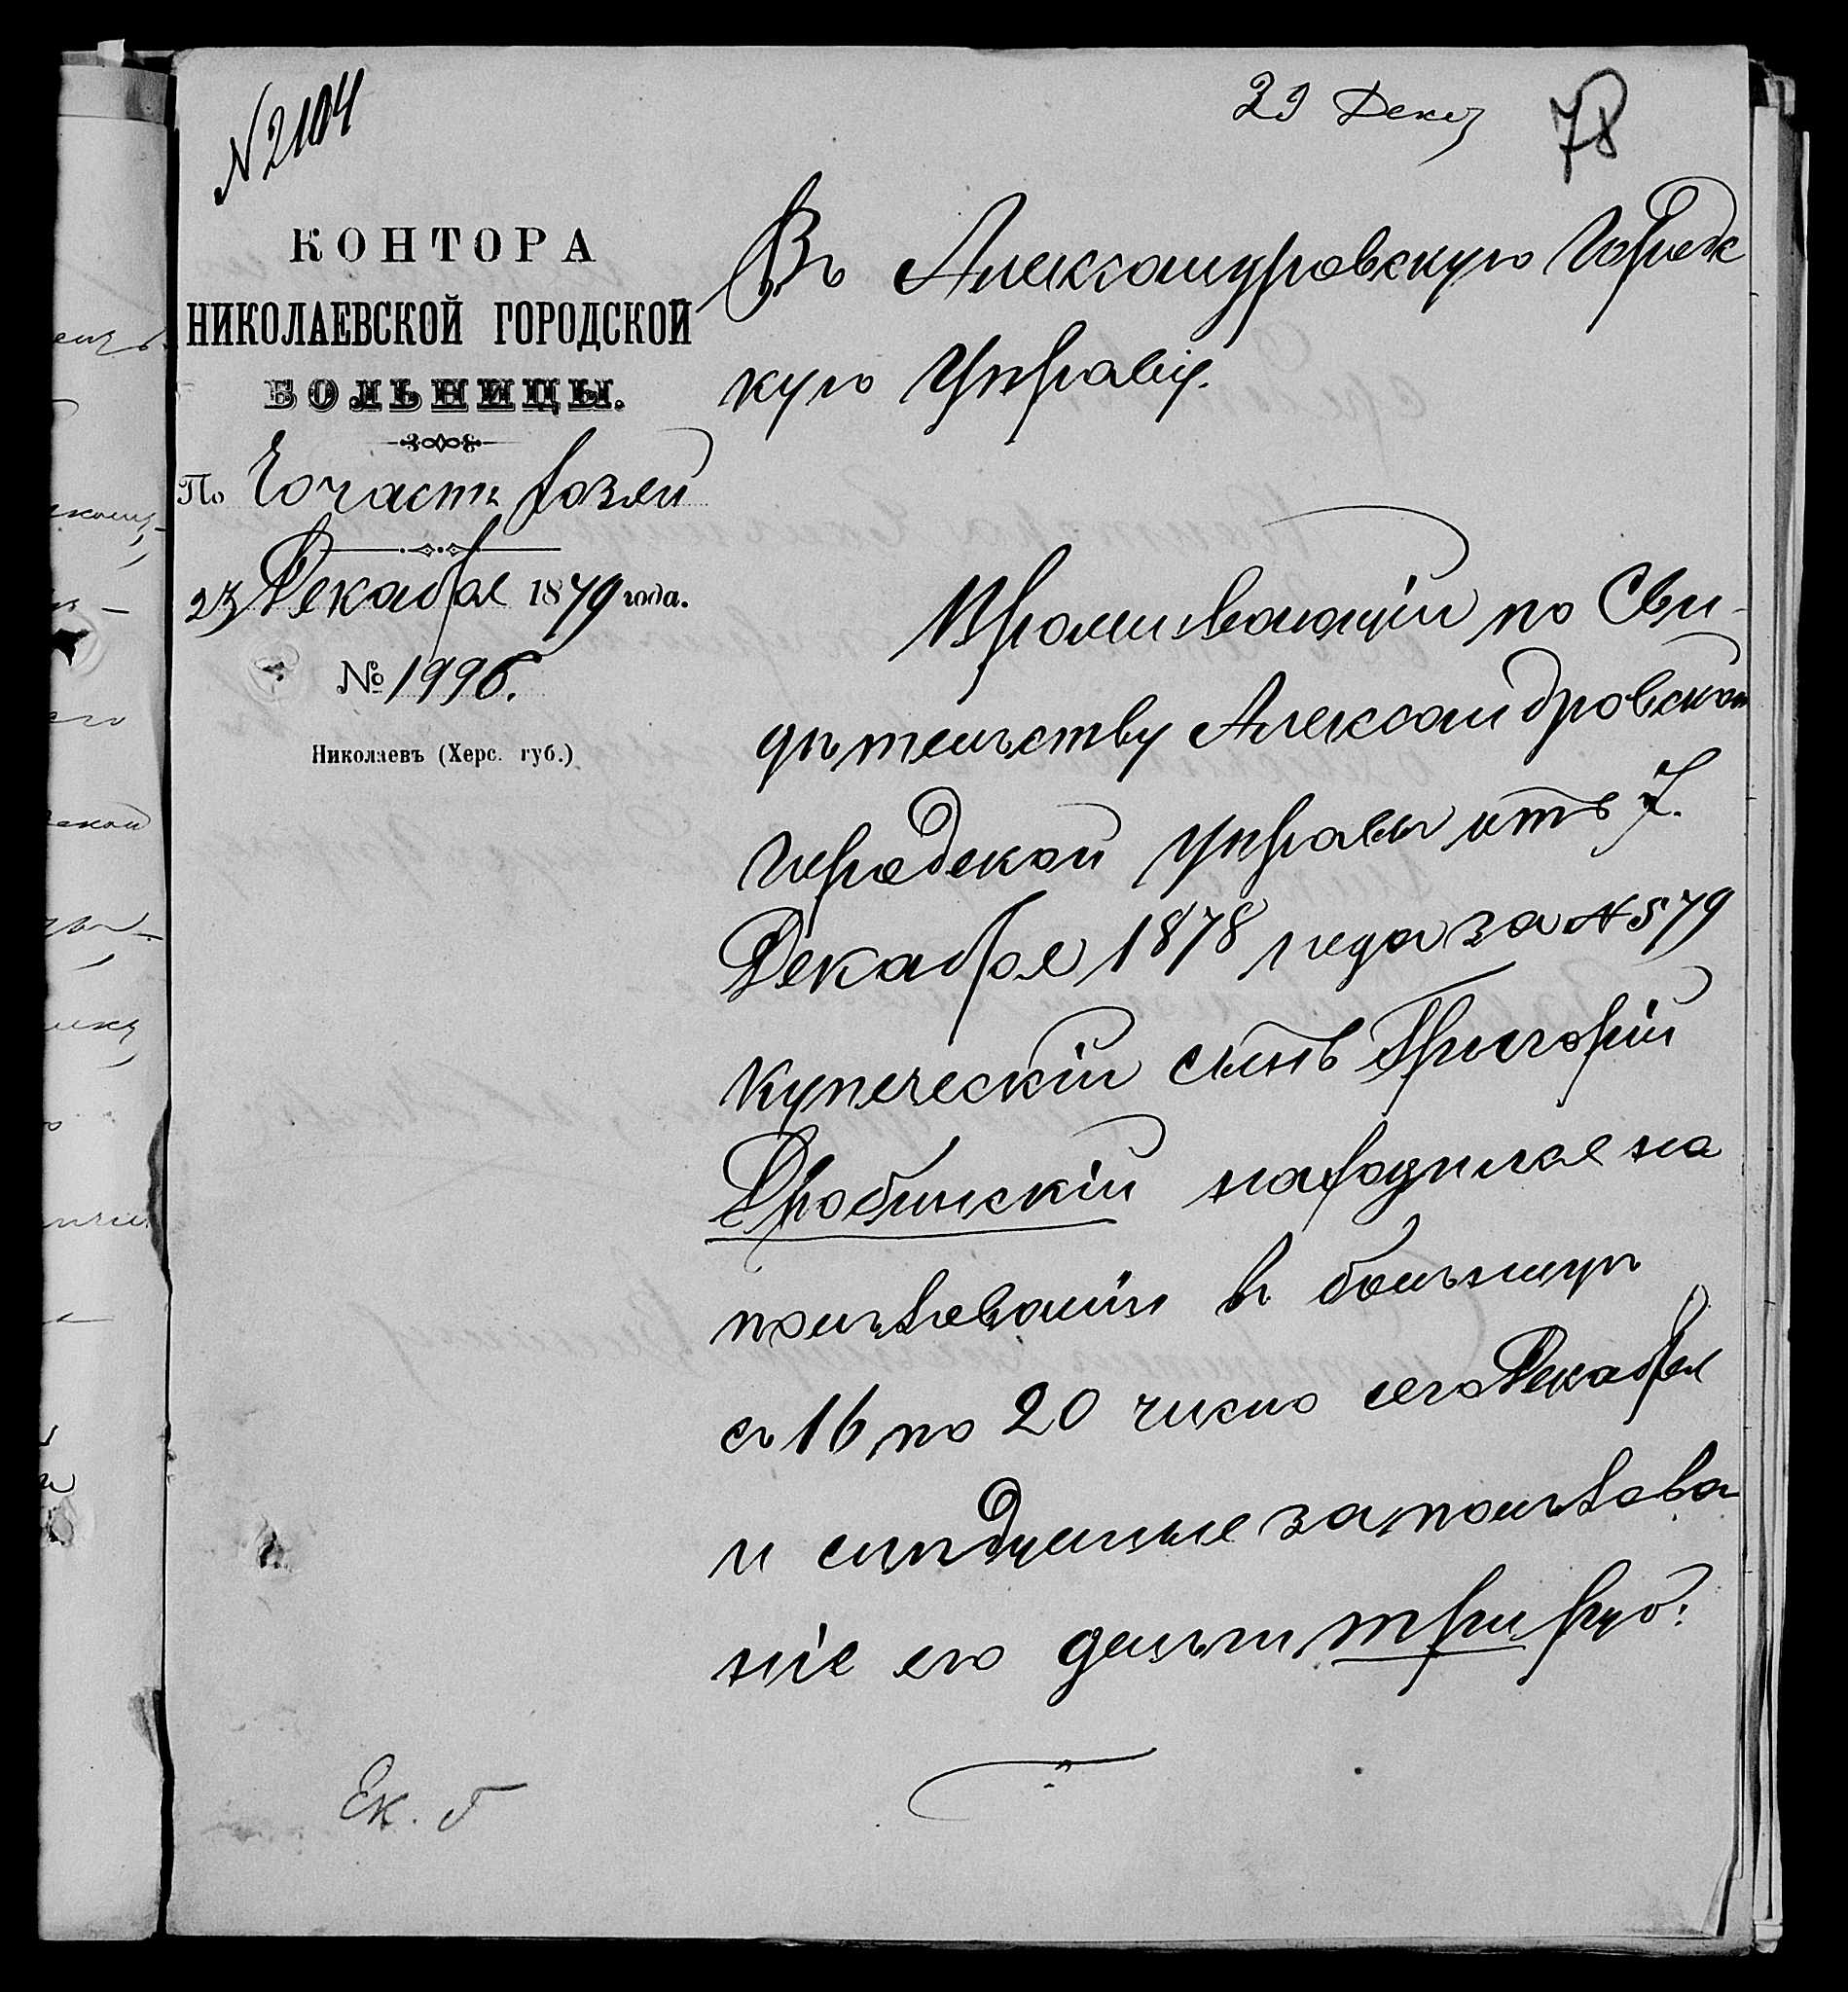 № 2104
29 Дек
78
КОНТОРА
НИКОЛАЕВСКОЙ ГОРОДСКОЙ
БОЛЬНИЦЫ.
По части хозяй
23 Декабря 1879 года.
№ 1996.
Николаевъ (Херс. губ.)
Въ Александровскую Городс
кую Управу.
Проживающій по Сви-
дѣтельству Александровской
Городской Управы отъ 7.
Декабря 1878 года за № 579
купеческій сынъ Григорій
Дробинскій находился на
пользованіи въ больницѣ
съ 16 по 20 число сего Декабря
и слѣдуемые за пользова-
ніе его деньги три руб:
Ек. г